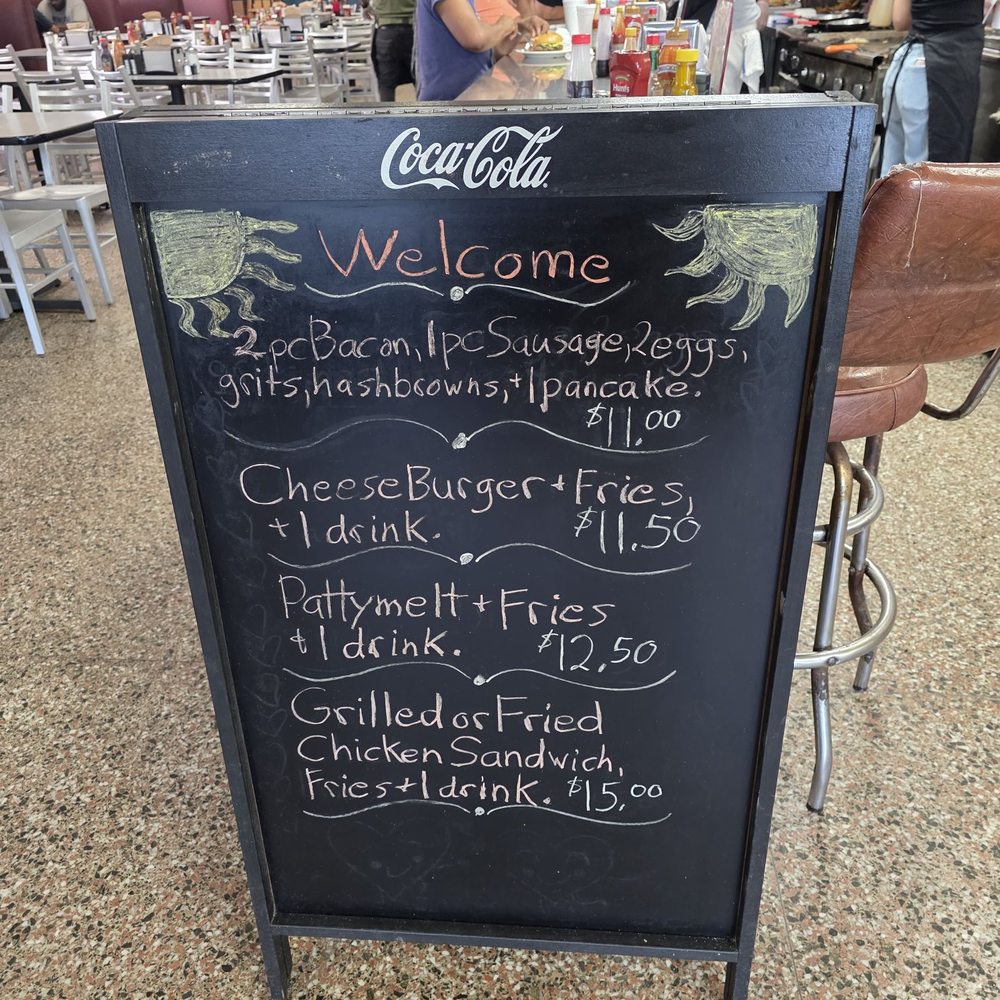 Hunt's
Coca-Cola
Welcome
2pc Bacon, 1pc Sausage, 2eggs,
grits, hashbrowns, + 1 pancake.
$11.00
Cheese Burger + Fries,
+ 1 drink. $11.50
Pattymelt + Fries
+ 1 drink. $12.50
Grilled or Fried
Chicken Sandwich,
Fries + 1 drink. $15.00